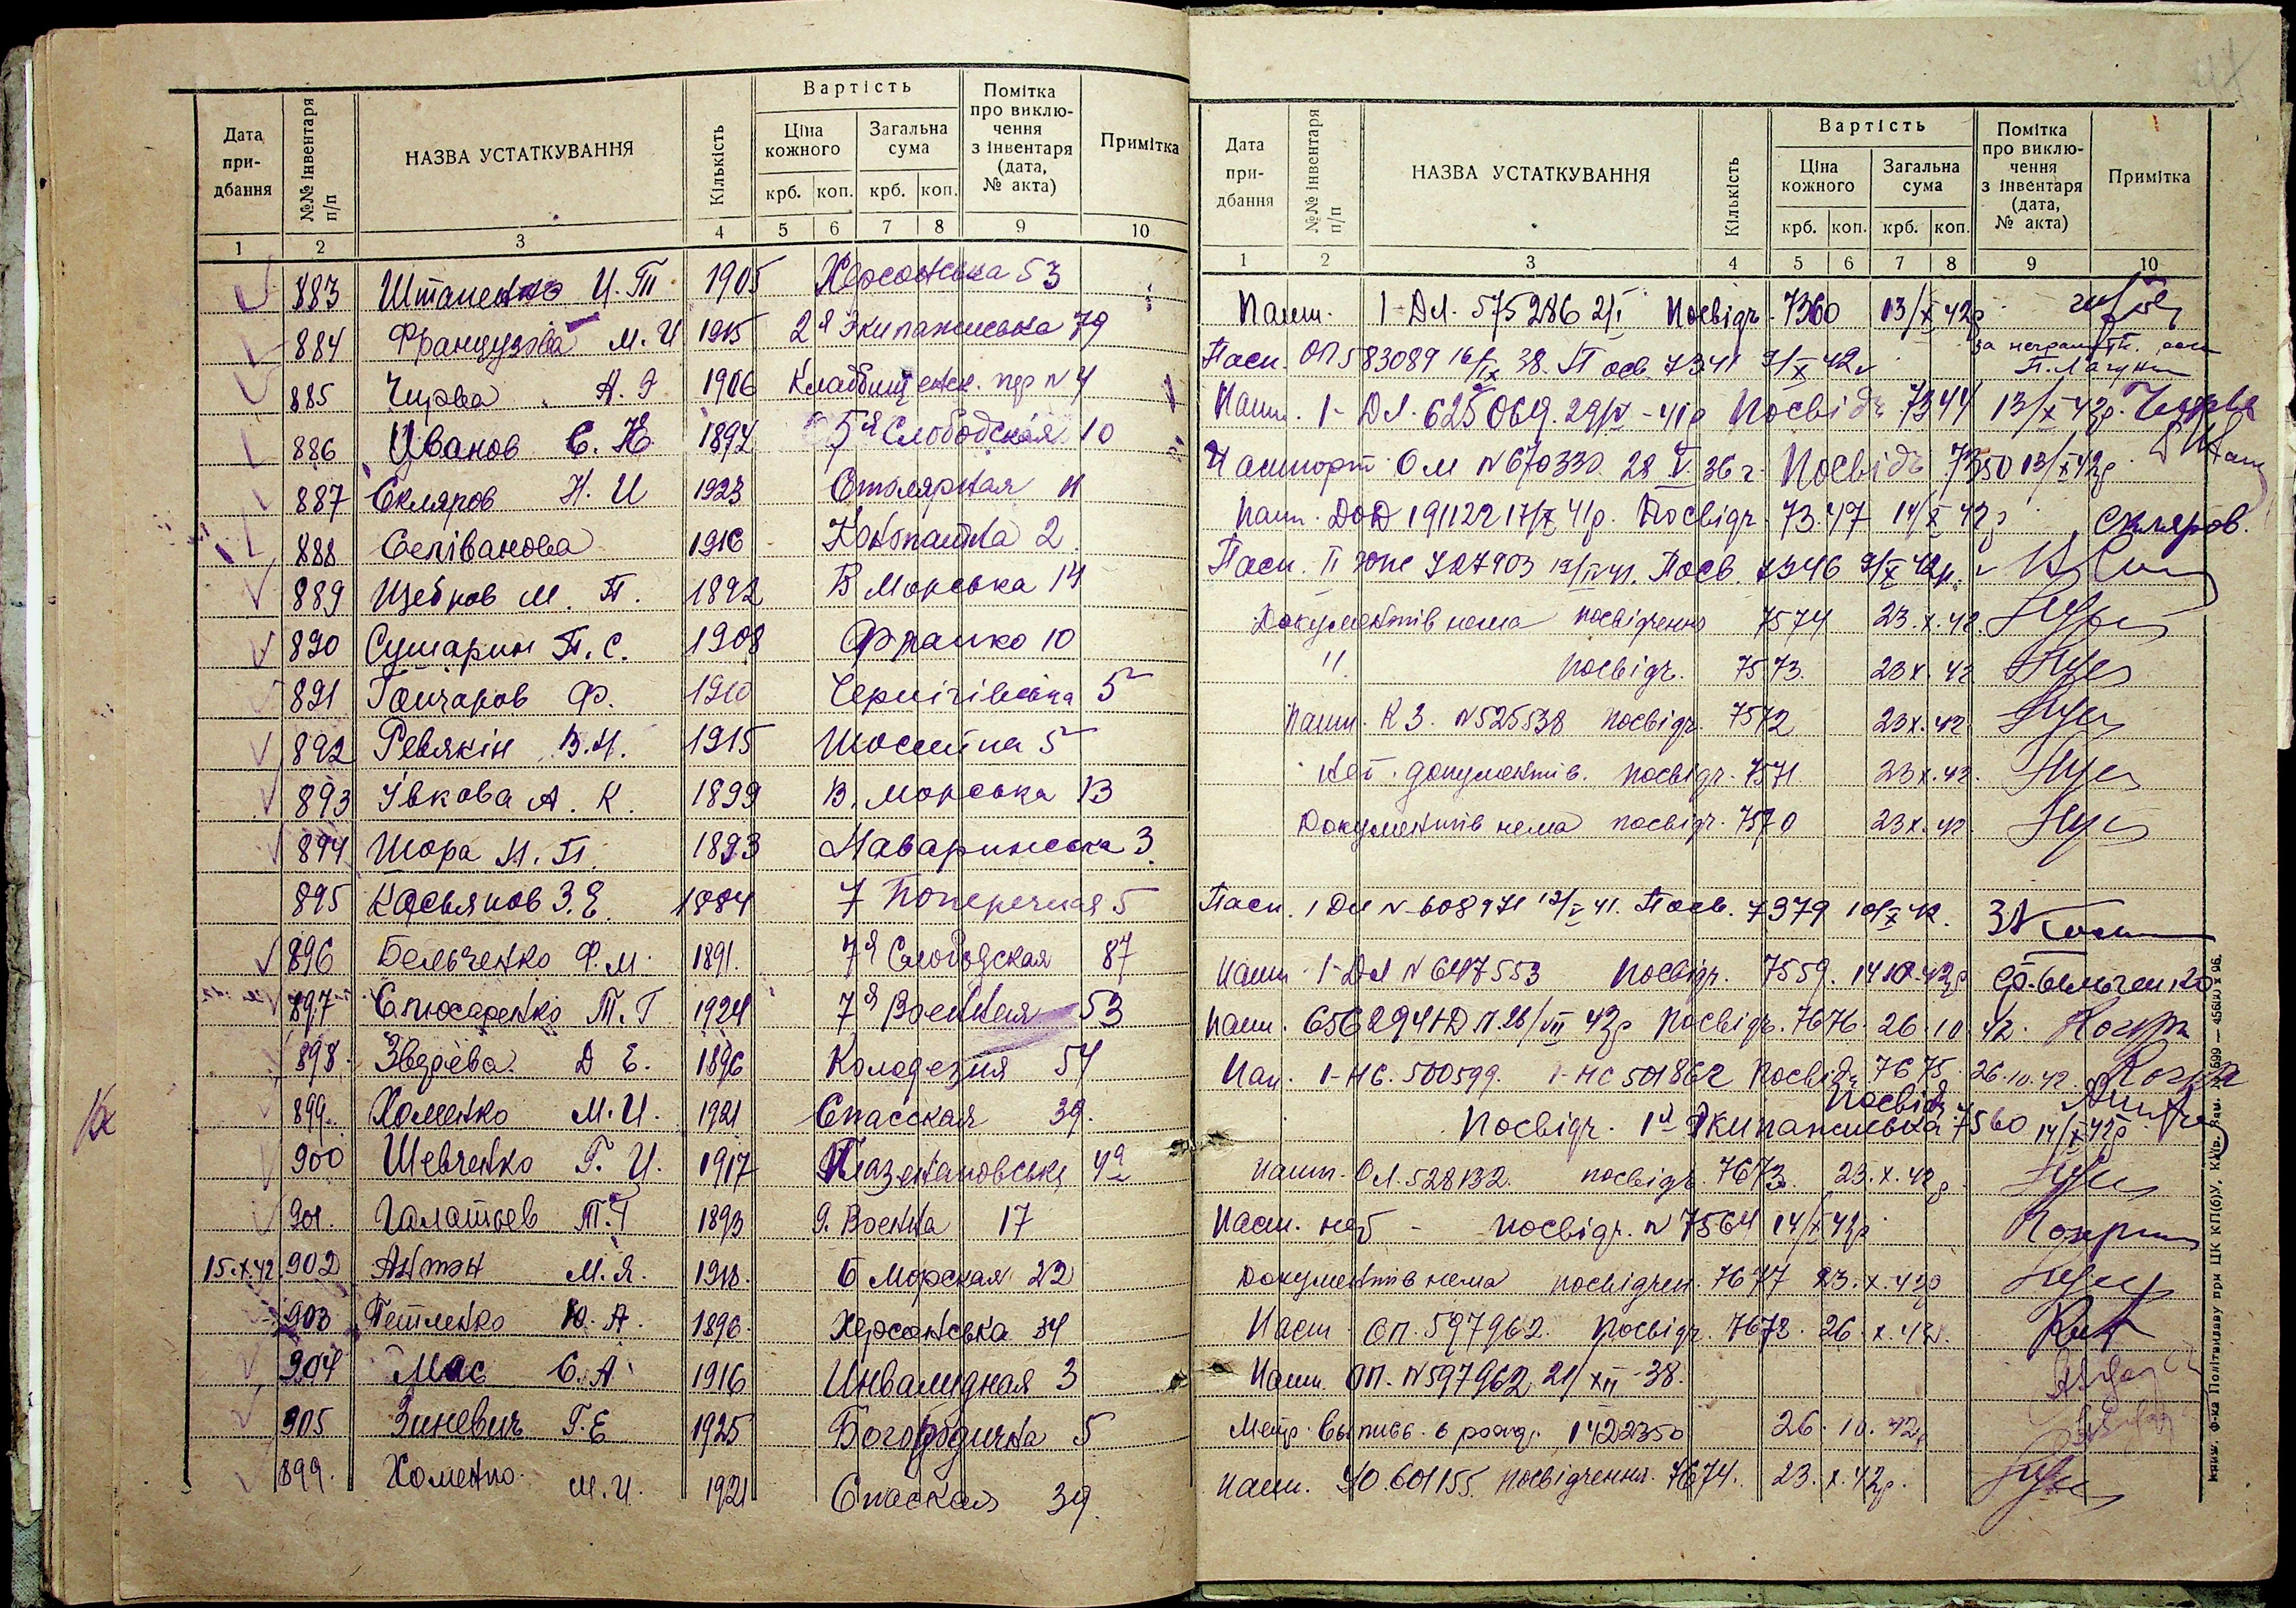 Дата придбання №№ інвентаря п/п НАЗВА УСТАТКУВАННЯ Кількість Вартість Ціна кожного крб. коп. Загальна сума крб. коп. Помітка про виключення з інвентаря (дата, № акта) Примітка
1 2 3 4 5 6 7 8 9 10
883 Штаненко И. П 1905 Херсонська 53
884 Французова М. И 1915 2я Экипажиська 79
885 Чирва А. 1906 Кладбищенск. пер N 4
886 Иванов С. К 1894 5я Слободская 10
887 Скляров Н. И 1923 Столярная 11
888 Селіванова 1916 2
889 Щебров М. П. 1892 В Морська 14
890 Сушарин П. С. 1908 Франко 10
891 Гончаров Ф. 1910 Чернігівська 5
892 Ревякін В. И. 1915 Шосейна 5
893 Івкова А. К. 1899 В. Морська 13
894 Шора Н. П. 1893 Наваринська 3
895 Касьянов З. Е. 1884 7 Поперечная 5
896 Бельченко Ф. М. 1891. 7я Слободская 87
897 Слюсаренко Т. Г 1924 7я Военная 53
898 Д Е. 1896 Колодезня 54
899. Хоменко М. И. 1921 Спасская 39.
900 Шевченко Г. И. 1917 4а
901. Галатьев Т. Г 1893 9. Воення 17
15.X.42 902 Антон М. Я. 1918. Б Морская 22
903 Петленко Ю. А. 1896. Херсонська 34
904 Мас С. А 1916 Инвалидная 3
905 Зиневич Г. Е 1925 Богородична 5
899. Хоменко М. И. 1921 Спаская 39.
Дата придбання №№ інвентаря п/п НАЗВА УСТАТКУВАННЯ Кількість Вартість Ціна кожного крб. коп. Загальна сума крб. коп. Помітка про виключення з інвентаря (дата, № акта) Примітка
1 2 3 4 5 6 7 8 9 10
Пашп. 1-ДЛ. 575286 Посвідч. 7360 13/X 42р
Пасп. ОП 583089 16/IX 38. Посв. 7341 9/X 42
Пашп. 1-ДЛ. 625069. 29/IV-41р Посвідч. 7344 13/X 42р. Чирва
Пашпорт ОМ N 670330 28 V 36 г. Посвідч 7350 13/X 42р.
Пашп. 191122 17/X 41р. Посвідч. 7347 14/X 42р Скляров.
Пасп. 727903 Посв. 7346 9/X 42р.
Документів нема посвідчення 7574 23.X.42.
" посвідч. 7573. 23 X. 42
Пашп. КЗ. N 525538 посвідч. 7572 23 X. 42
Нет документів. посвідч. 7571. 23 X. 42.
Документів нема посвідч. 7570 23 X. 42
Пасп. 1 ДЛ N-608971 12/V 41. Посв. 7379 10/X 42.
Пашп. 1-ДЛ N 647553 Посвідч. 7559. 14 10.42р Ф. Бельченко
Пашп. 656294 1Д Л. 26/VII 42р Посвідч. 7676. 26.10.42.
Пап. 1-НС. 500599. 1-НС 501862 Посвідч 7675. 26.10.42.
Посвідч. 1й Экипажиська 7560 14/X 42р
Пашп. ОЛ. 528132. посвідч. 7673. 23.X.42р.
Пасп. неб - посвідч. N 7564 14/X 42р.
Документів нема посвідчен. 7677 23.X.42р
Пасп ОП. 597962. Посвідч. 7678. 26.X.42.
Пашп. ОП. N 597962 21/XII-38.
Метр. выпись о рожд. 1422350 26.10.42р
Пашп. 601155 посвідчення. 7674. 23.X.42р.